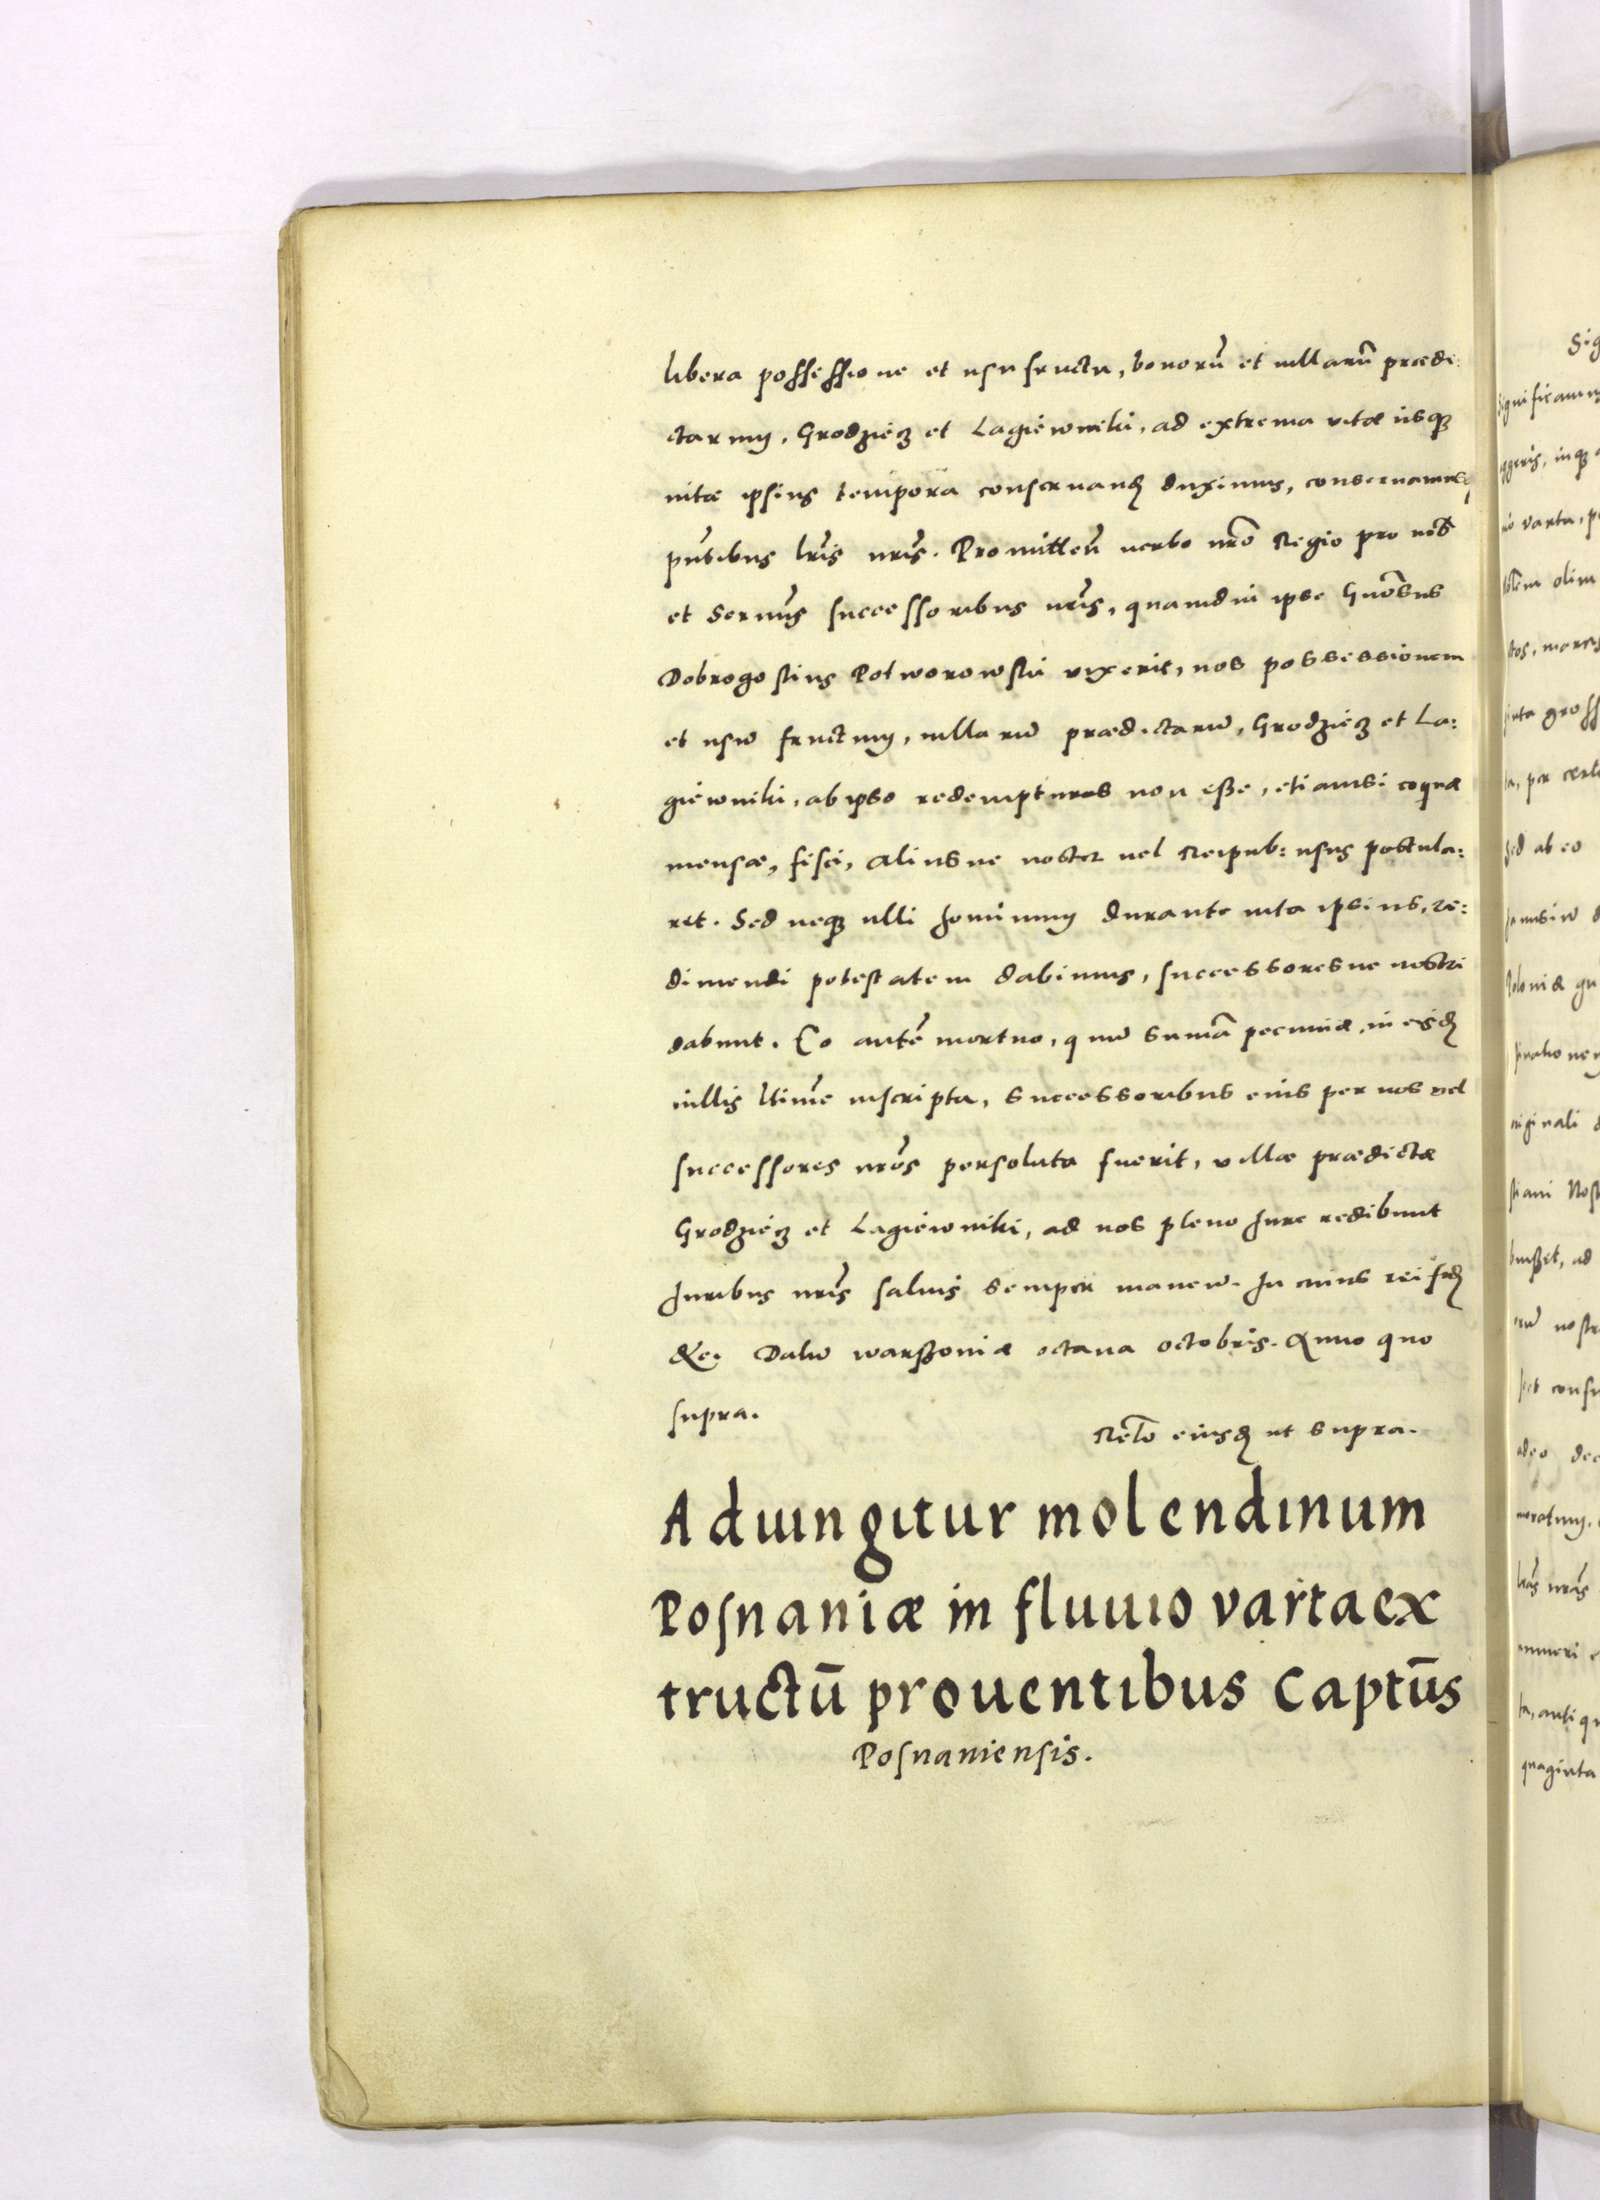 libera possessione et usufructu, bonorū et villarū prædi:
ctarum, Grodzięcz et Lagiewniki, ad extrema vitæ usq3
vitæ ipsius tempora conservand duximus, conservamusq
pn̄tibus lr̄is nr̄is. Promitten̄ verbo nr̄o Regio pro nob̄
et Sermis̄ successoribus nr̄is, quamdiu ipse Gnōsus
Dobrogostius Potworowski vixerit, nos possessionem
et usum fructum, villarum prædictarum, Grodzięcz et La:
giewniki, ab ipso redempturos non esse, etiamsi coquæ
mensæ, fisci, aliusve noster vel Reipub: usus postula:
ret. Sed neq3 ulli hominum durante vita ipsius, re:
dimendi potestatem dabimus, successoresve nostri
dabunt. Eo autē mortuo, quum sum̄a pecuniæ, in eisd
villis l̄time inscripta, successoribus eius per nos vel
successores nr̄os persoluta fuerit, villæ prædictæ
Grodzięcz et Lagiewniki, ad nos pleno Jure redibunt
Juribus nr̄is salvis semper manen. In cuius rei fid
&c. Datum Warssoviæ octava octobris. Anno quo
supra.
Rel̄o eiusd ut supra.
Adiungitur molendinum
Posnaniæ in fluvio varta ex
tructū proventibus Captūs
Posnaniensis.